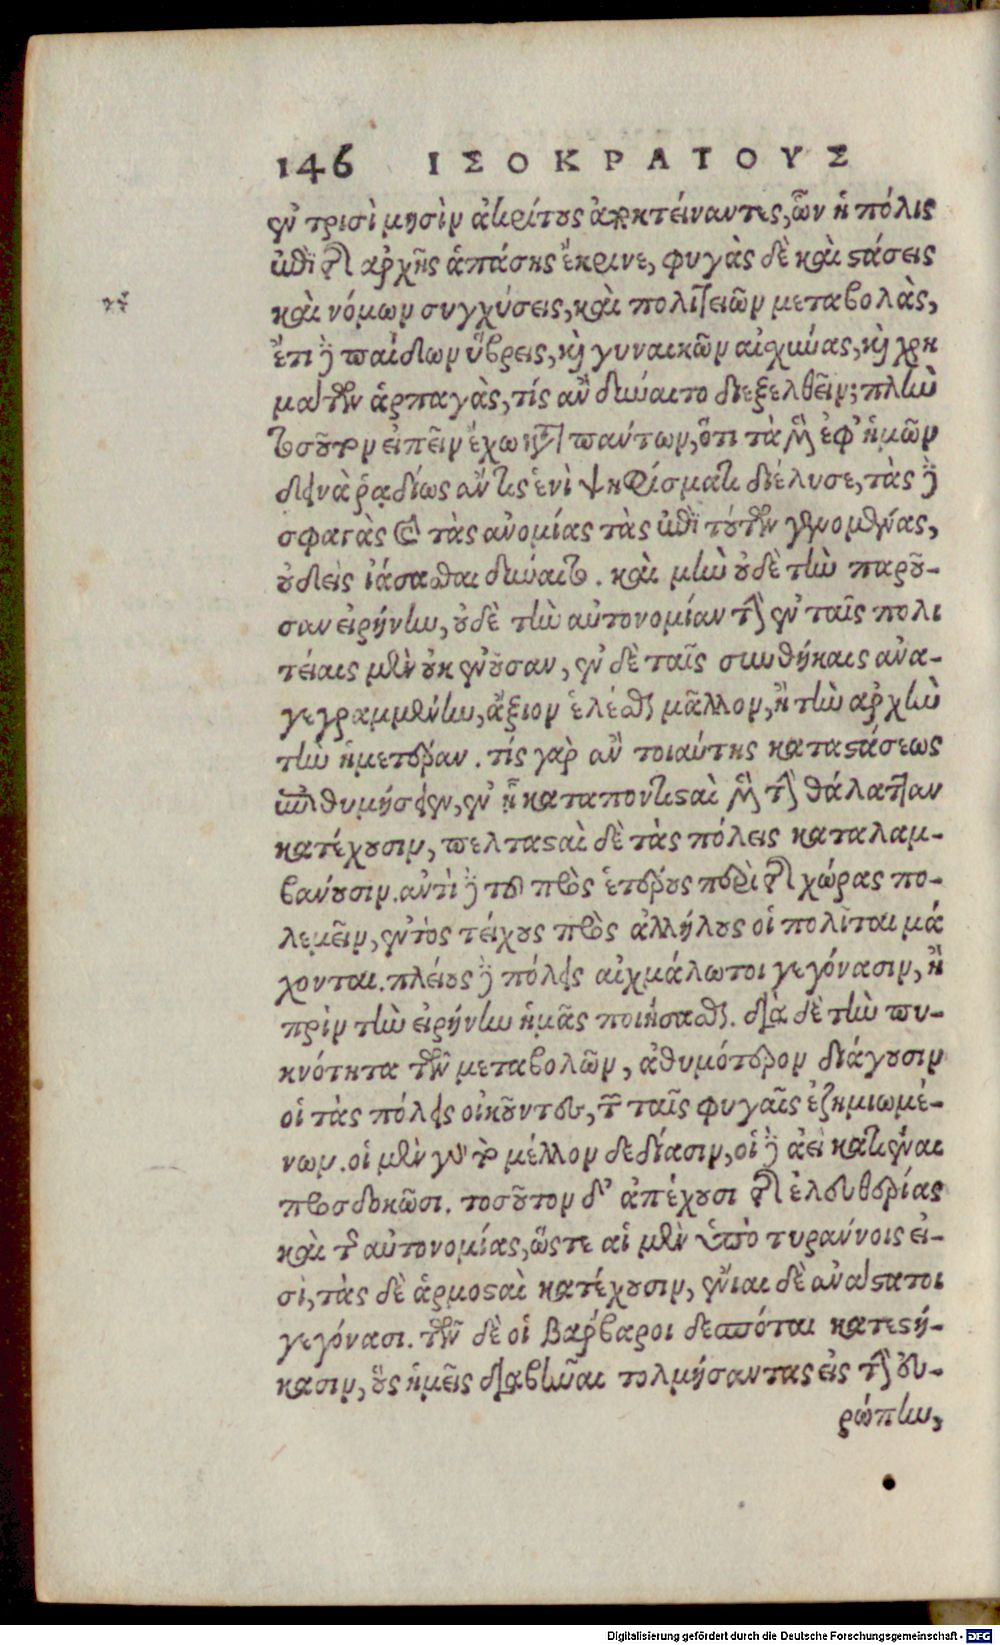 146 ΙΣΟΚΡΑΤΟΥΣ
ἐν τρισὶ μησὶν ἀκρίτους ἀποκτείναντες, ὧν ἡ πόλις
ἐπὶ τῆς ἀρχῆς ἁπάσης ἔκρινε, φυγὰς δὲ καὶ στάσεις
καὶ νόμων συγχύσεις, καὶ πολιτειῶν μεταβολὰς,
ἔτι δὲ παίδων ὕβρεις, καὶ γυναικῶν αἰσχύνας, καὶ χρη
μάτων ἁρπαγὰς, τίς ἂν δύναιτο διεξελθεῖν; πλὴν
τοσοῦτον εἰπεῖν ἔχω κατὰ πάντων, ὅτι τὰ μὲν ἐφ' ἡμῶν
δεινὰ ῥᾳδίως ἄν τις ἑνὶ ψηφίσματι διέλυσε, τὰς δὲ
σφαγὰς καὶ τὰς ἀνομίας τὰς ἐπὶ τούτων γενομένας,
οὐδεὶς ἰάσασθαι δύναιτο. καὶ μὴν οὐδὲ τὴν παροῦ-
σαν εἰρήνην, οὐδὲ τὴν αὐτονομίαν τὴν ἐν ταῖς πολι
τείαις μὲν οὐκ ἐνοῦσαν, ἐν δὲ ταῖς συνθήκαις ἀνα-
γεγραμμένην, ἄξιον ἑλέσθαι μᾶλλον, ἢ τὴν ἀρχὴν
τὴν ἡμετέραν. τίς γὰρ ἂν τοιαύτης καταστάσεως
ἐπιθυμήσειεν, ἐν ᾗ καταποντισταὶ μὲν τὴν θάλατταν
κατέχουσιν, πελτασταὶ δὲ τὰς πόλεις καταλαμ-
βάνουσιν. ἀντὶ δὲ τοῦ πρὸς ἑτέρους περὶ τῆς χώρας πο-
λεμεῖν, ἐντὸς τείχους πρὸς ἀλλήλους οἱ πολῖται μά
χονται. πλείους δὲ πόλεις αἰχμάλωτοι γεγόνασιν, ἢ
πρὶν τὴν εἰρήνην ἡμᾶς ποιήσασθαι. διὰ δὲ τὴν πυ-
κνότητα τῶν μεταβολῶν, ἀθυμότερον διάγουσιν
οἱ τὰς πόλεις οἰκοῦντες, τῶν ταῖς φυγαῖς ἐζημιωμέ-
νων. οἱ μὲν γὰρ τὸ μέλλον δεδίασιν, οἱ δὲ ἀεὶ κατιέναι
προσδοκῶσι. τοσοῦτον δ' ἀπέχουσι τῆς ἐλευθερίας
καὶ τῆς αὐτονομίας, ὥστε αἱ μὲν ὑπὸ τυράννοις εἰ-
σὶ, τὰς δὲ ἁρμοσταὶ κατέχουσιν, ἔνιαι δὲ ἀνάστατοι
γεγόνασι. τῶν δὲ οἱ βάρβαροι δεσπόται κατεστή-
κασιν, οὓς ἡμεῖς διαβῆναι τολμήσαντας εἰς τὴν εὐ-
ρώπην,
Digitalisierung gefördert durch die Deutsche Forschungsgemeinschaft - DFG